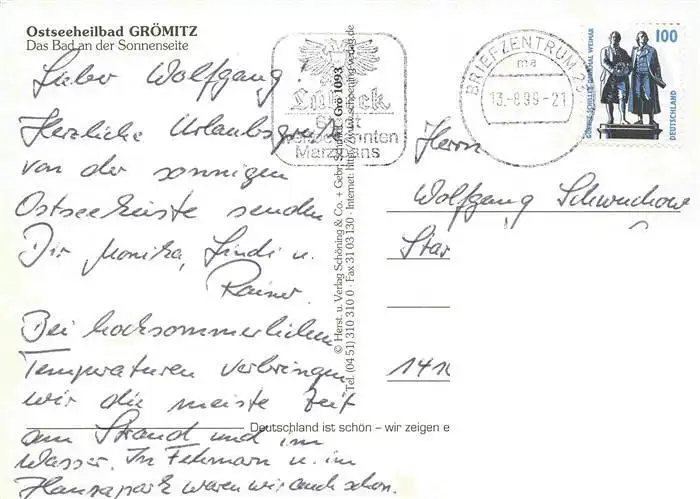 Ostseeheilbad GRÖMITZ
Das Bad an der Sonnenseite
Lieber Wolfgang!
Herzliche Urlaubsgrüße
von der sonnigen
Ostseeküste senden
Dir Monika, Lindi u.
Rainer.
Bei hochsommerlichen
Temperaturen verbringen
wir die meiste Zeit
am Strand und im
Wasser. In Fehmarn u. im
Hansapark waren wir auch schon.
Lübeck
weltbekannten
Marzipans
© Herst. u. Verlag Schöning & Co. + Gebr. Schmidt Grö 1093
Tel. (04 51) 310 310 0 · Fax 31 03 130 · Internet: http://www.schoening-verlag.de
BRIEFZENTRUM 23
ma
13.-8.99-21
100
DEUTSCHLAND
GOETHE-SCHILLER-DENKMAL WEIMAR
Herrn
Wolfgang Schwuchow
Star
141
Deutschland ist schön – wir zeigen e